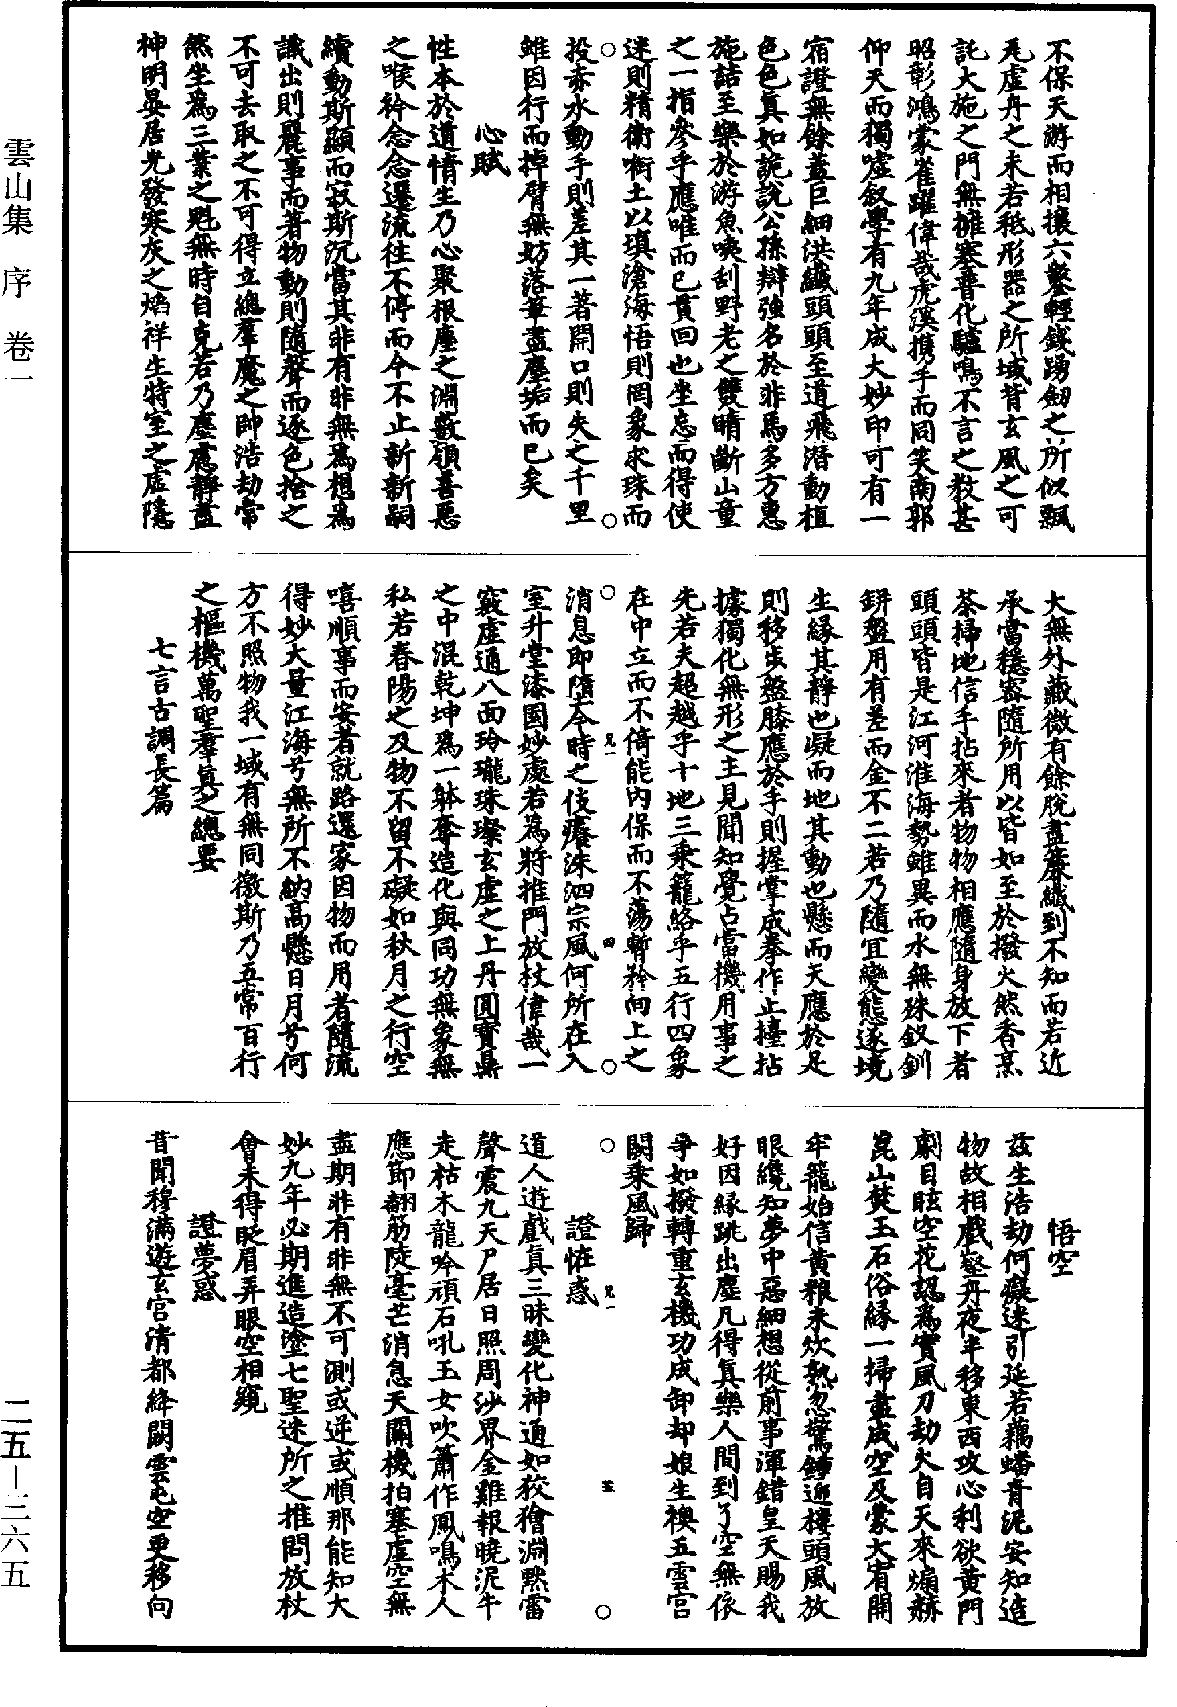 不保天游而相攘六鑿輕錢踢劒之所似飄
瓦虛丹之未若秪形器之所域昔玄風之可
託大施之門無擁塞普化驢鳴不言之教甚
昭彰鴻蒙雀躍偉哉虎溪擕手而同笑南郭
仰天而獨噓叙學有九年成大妙印可有一
宿證無餘蓋巨細洪纖頭頭至道飛潛動植
色色真如詭說公孫辯強名於非馬多方惠
施詰至樂於游魚咦刮野老之雙睛斷山童
之一指參乎應唯而已貫回也坐忘而得使
迷則精衛銜土以填滄海悟則罔象求珠而
投赤水動手則差其一著開口則失之千里
雖因行而掉臂無妨落筆盡塵垢而已矣
心賦
性本於道情生乃心聚根塵之淵藪領善惡
之喉衿念念遷流往不停而今不止新新嗣
續動斯顯而寂斯沉當其非有非無爲想爲
識出則麗事而著物動則隨聲而逐色捨之
不可去取之不可得立緫羣魔之帥浩劫常
然坐爲三業之魁無時自克若乃塵慮靜盡
神明晏居光發寒灰之焰祥生特室之虛隱
大無外藏微有餘脫盡廉纖到不知而若近
承當穩審隨所用以皆如至於撥火然香烹
茶掃地信手拈來者物物相應隨身放下者
頭頭皆是江河淮海勢雖異而水無殊釵釧
鉼盤用有差而金不二若乃隨宜變態逐境
生緣其靜也凝而地其動也懸而天應於足
則移步盤膝應於手則握掌成拳作止擡拈
據獨化無形之主見聞知覺占當機用事之
先若夫超越乎十地三乘籠絡乎五行四象
在中立而不倚能內保而不蕩暫矜向上之
消息即墮今時之伎癢洙泗宗風何所在入
室升堂漆園妙處若爲將推門放杖偉哉一
竅虛通八面玲瓏珠璨玄虛之上丹圓寶鼎
之中混乾坤爲一躰奪造化與同功無象無
私若春陽之及物不留不礙如秋月之行空
嘻順事而安者就路還家因物而用者隨流
得妙大量江海兮無所不納高懸日月兮何
方不照物我一域有無同徼斯乃五常百行
之樞機萬聖羣真之總要
七言古調長篇
悟空
茲生浩劫何癡迷引延若藕蟠青泥安知造
物故相戲壑丹夜半移東西攻心利欲黃門
劇目眩空花認爲實風刀劫火自天來煽赫
崑山焚玉石俗緣一掃盡成空及蒙大宥開
牢籠始信黃粮未炊熟忽驚鍾迎樓頭風放
眼纔知夢中惡細想從前事渾錯皇天賜我
好因緣跳出塵凡得真樂人間到了空無依
爭如撥轉重玄機功成卸却娘生襖五雲宮
闕乘風歸
證恠惑
道人遊戲真三昧變化神通如狡獪淵默雷
聲震九天尸居日照周沙界金雞報曉泥牛
走枯木龍吟頑石吼玉女吹簫作鳳鳴木人
應節翻筋陡毫芒消息天關機拍塞虛空無
盡期非有非無不可測或逆或順那能知大
妙九年必期進造塗七聖迷所之推問放杖
會未得眨眉弄眼空相窺
證夢惑
昔聞穆滿遊玄宮清都絳闕雲屯空更移向
雲山集 序 卷一
二五—三六五